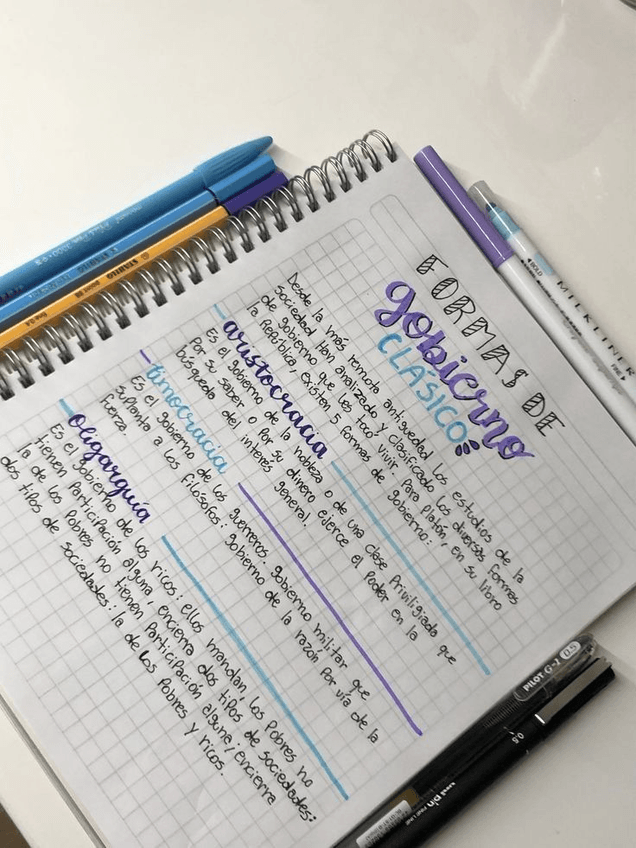 FORMAS DE
gobierno
CLÁSICO
Desde la más remota antiguedad los estudios de la
Sociedad Han analizado y clasificado las diversas formas
de gobierno que les tocó vivir. para platón, en su libro
la República, existen 5 formas de gobierno:
aristocracia
Es el gobierno de la nobleza o de una clase Priviligiada que
Por su saber o por su dinero ejerce el poder en la
búsqueda del interés general.
timocracia
Es el gobierno de los guerreros: gobierno militar que
suplanta a los filósofos: gobierno de la razón por vía de la
fuerza.
oligarquía
Es el gobierno de los ricos: ellos mandan los Pobres no
tienen participación alguna, encierra dos tipos de sociedades:
la de los Pobres no tienen participación alguna; encierra
dos tipos de sociedades: la de los Pobres y ricos.
STABILO
point 88
fine 0.4
MILDLINER
BOLD
FINE
PILOT G-2 0.5
0.5
uni pin FINE LINE